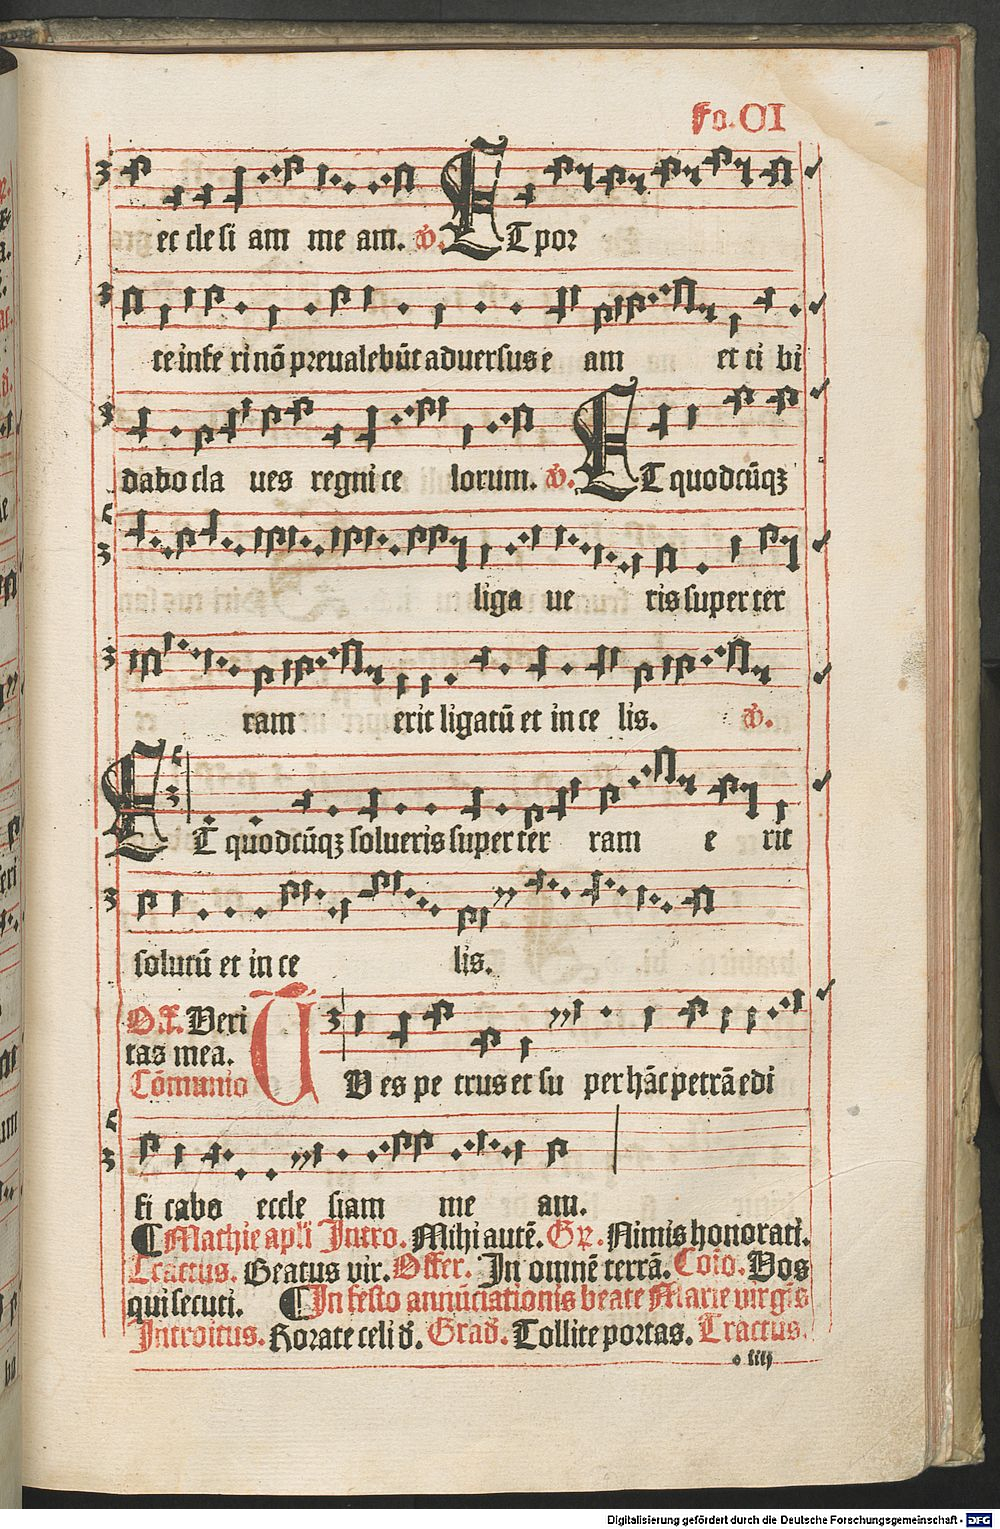 Fo. CI
ec cle si am me am. ℣. ET por
te infe ri nō preualebūt aduersus e am et ti bi
dabo cla ues regni ce lorum. ℣. ET quodcūqꝫ
liga ue ris super ter
ram erit ligatū et in ce lis. ℣.
ET quodcūqꝫ solueris super ter ram e rit
solutū et in ce lis.
Of. Veri
tas mea.
Cōmunio TU es pe trus et su per hāc petrā edi
fi cabo eccle siam me am.
¶ Mathie apli Intro. Mihi autē. Gr. Nimis honorati.
Tractus. Beatus vir. Offer. In omnē terrā. Coīo. Vos
qui secuti. ¶ In festo annūciationis beate Marie virgīs
Introitus. Rorate celi đ. Građ. Tollite portas. Tractus.
o iiij
Digitalisierung gefördert durch die Deutsche Forschungsgemeinschaft - DFG